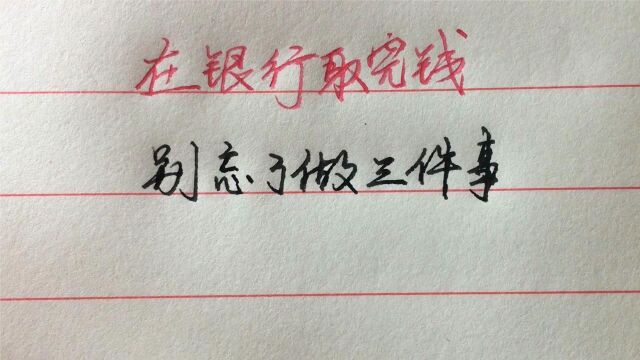 在银行取完钱
别忘了做三件事